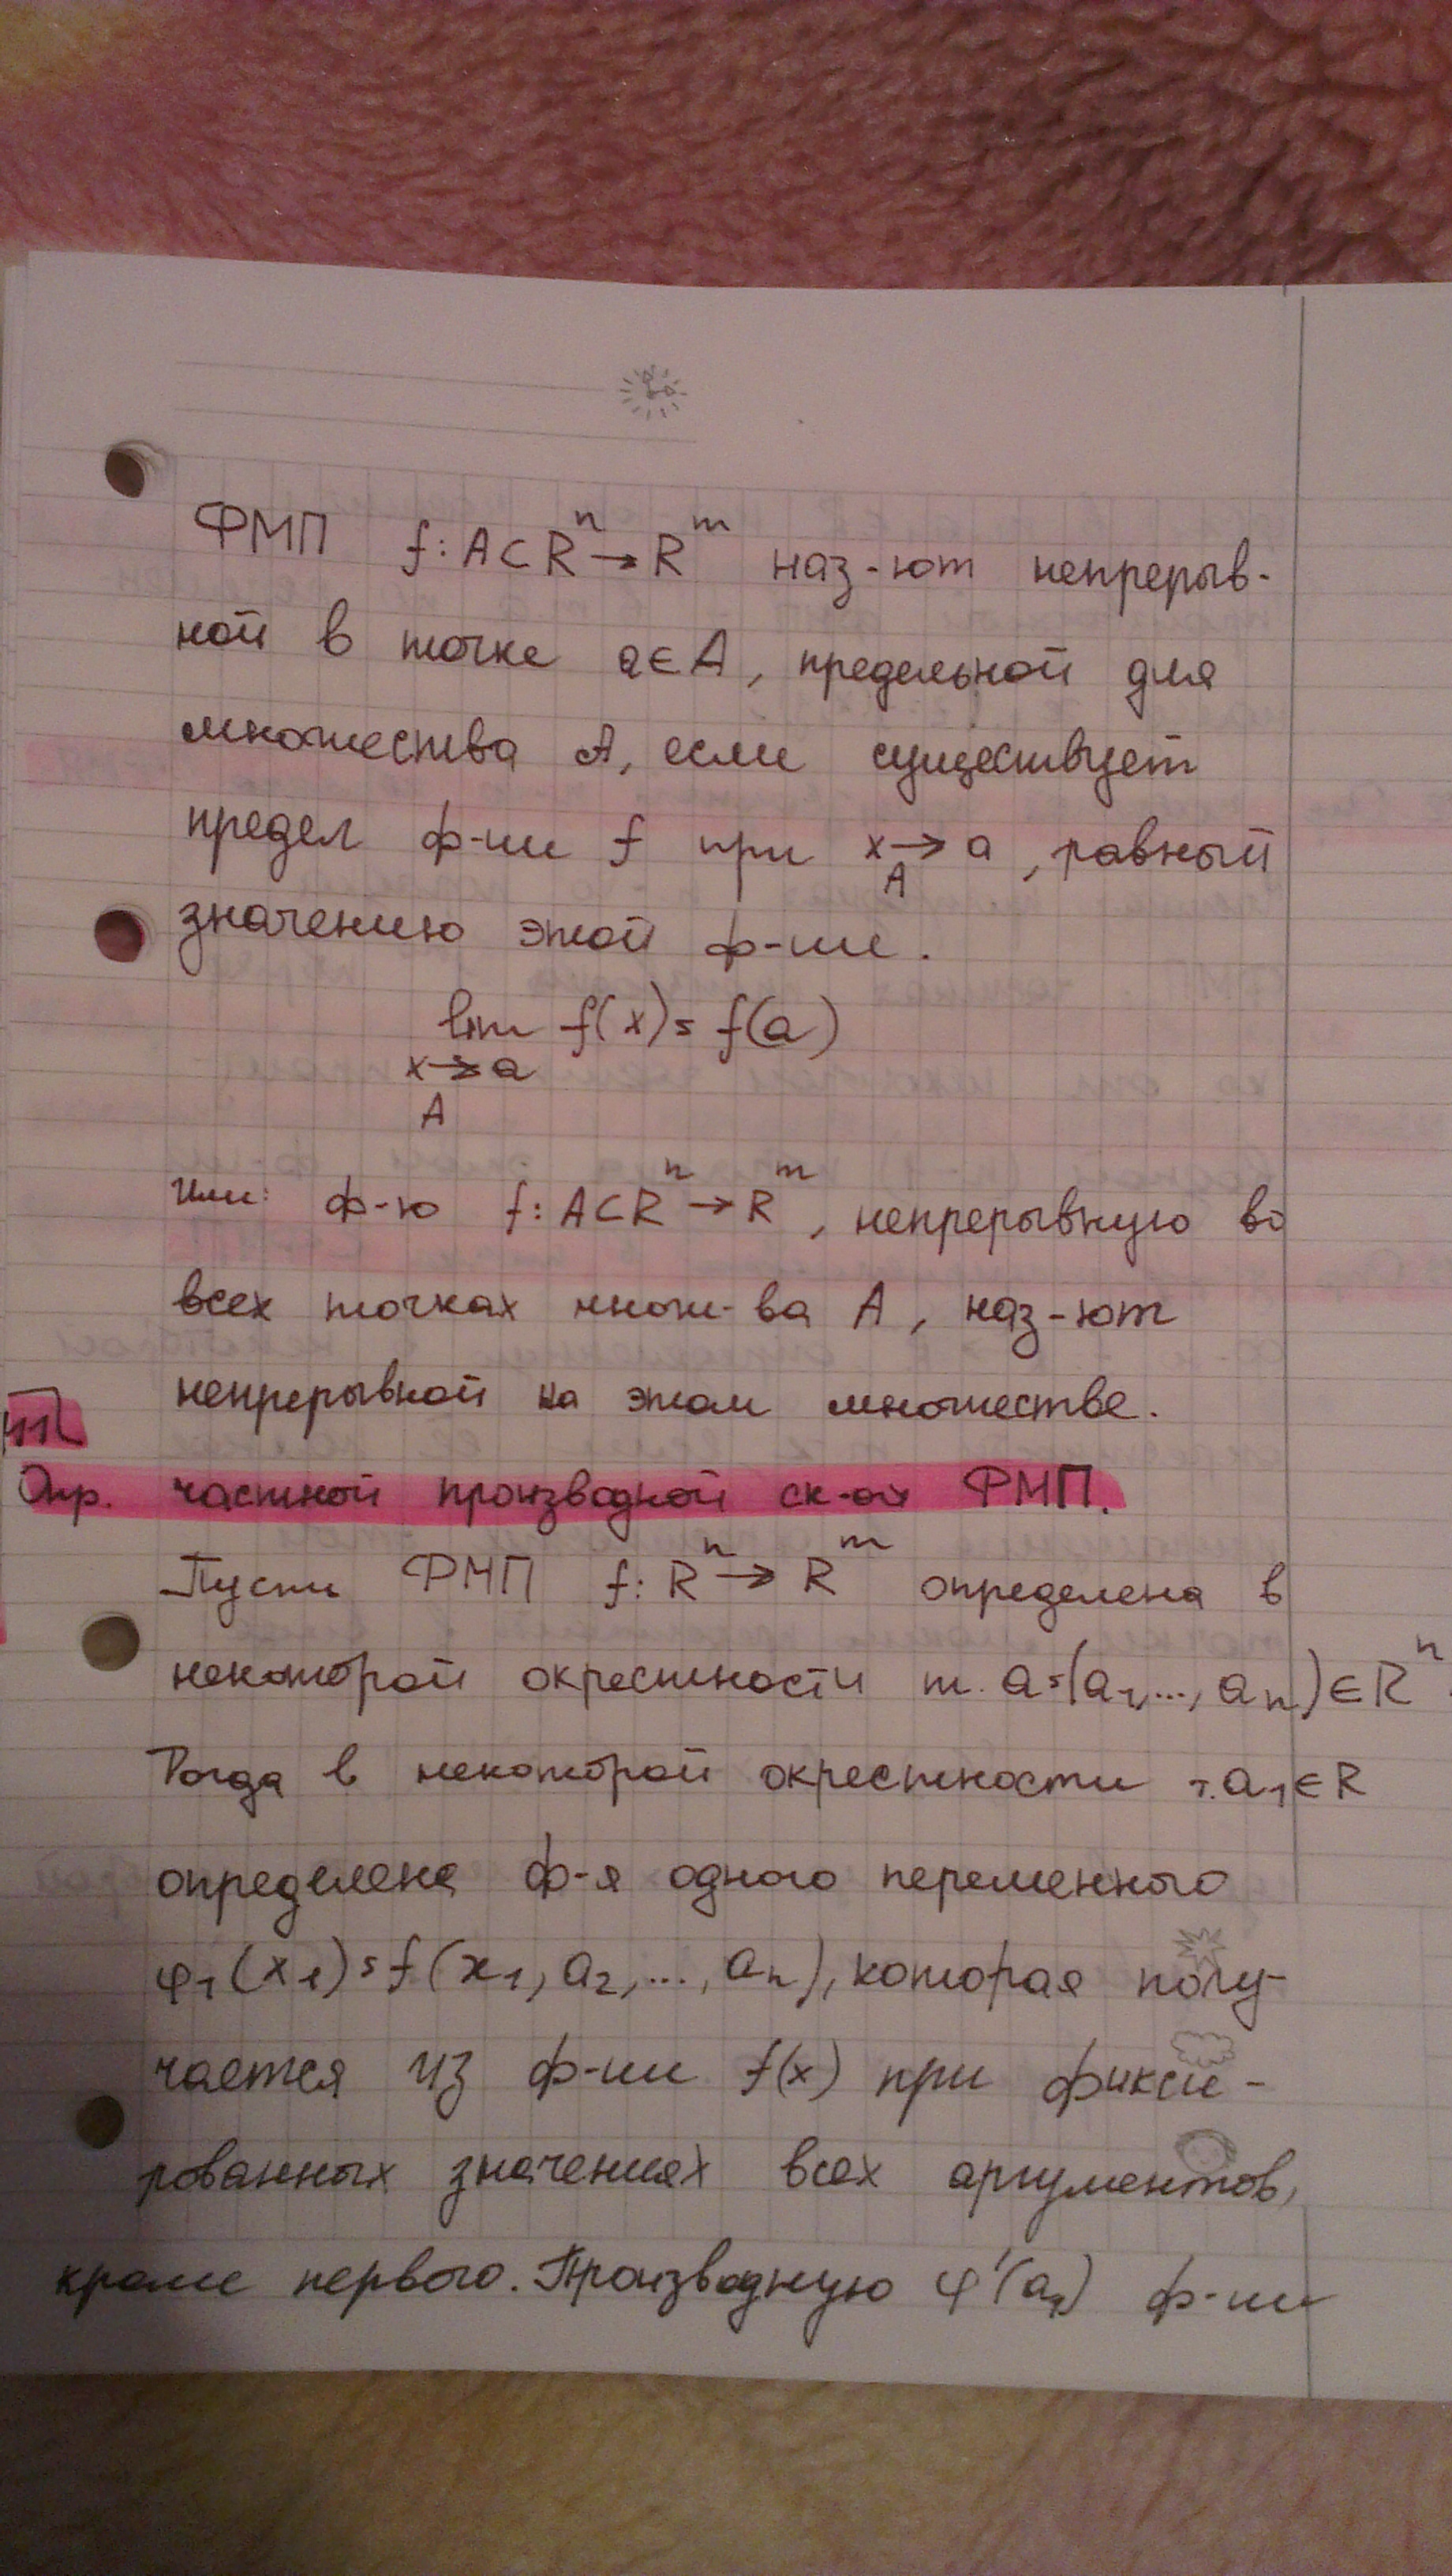 ФМП f: A⊂Rⁿ→Rᵐ наз-ют непрерыв-
ной в точке a∈A, предельной для
множества A, если существует
предел ф-ии f при x→a, равный
A
значению этой ф-ии.
lim f(x)=f(a)
x→a
A
Или: ф-ю f: A⊂Rⁿ→Rᵐ, непрерывную во
всех точках множ-ва A, наз-ют
непрерывной на этом множестве.
Опр. частной производной ск-ой ФМП.
Пусть ФМП f: Rⁿ→Rᵐ определена в
некоторой окрестности т. a=(a₁,..., aₙ)∈Rⁿ.
Тогда в некоторой окрестности т. a₁∈R
определена ф-я одного переменного
φ₁(x₁)=f(x₁, a₂,..., aₙ), которая полу-
чается из ф-ии f(x) при фикси-
рованных значениях всех аргументов,
кроме первого. Производную φ'(a₁) ф-ии